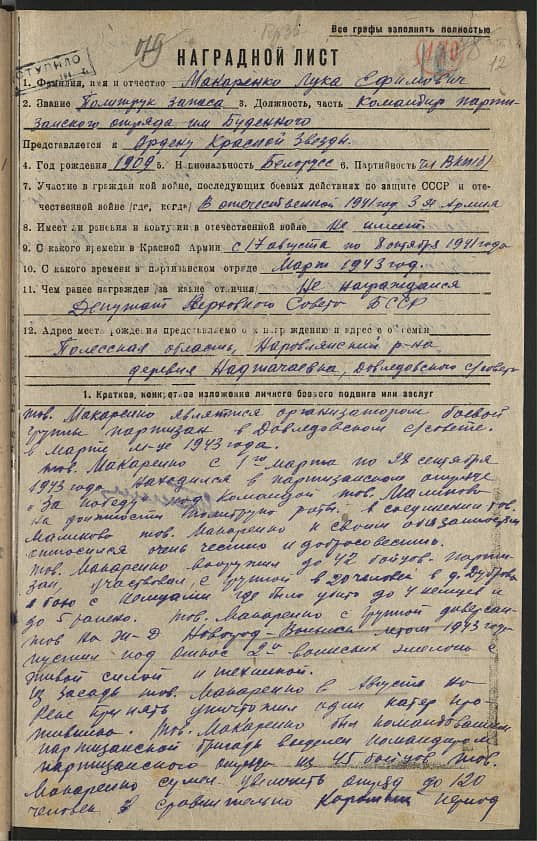 Все графы заполнять полностью
079
ПОСТУПИЛО
12
НАГРАДНОЙ ЛИСТ
1. Фамилия, имя и отчество Макаренко Лука Ефимович
2. Звание Политрук запаса 3. Должность, часть Командир парти-
занского отряда им Буденного
Представляется к Ордену Красной Звезды
4. Год рождения 1909 5. Национальность Белорусс 6. Партийность чл ВКП(б)
7. Участие в гражданской войне, последующих боевых действиях по защите СССР и оте-
чественной войне /где, когда/ В отечественной 1941 год 3я Армия
8. Имеет ли ранения и контузии в отечественной войне Не имеет
9. С какого времени в Красной Армии с 17 августа по 8 1941 года
10. С какого времени в партизанском отряде Март 1943 год.
11. Чем ранее награжден /за какие отличия/ Не награждался
Депутат Верховного Совета БССР
12. Адрес места рождения представляемого к награждению и адрес его семьи
Полесская область, Наровлянский р-на
деревня Надтачаевка, Довлядовского с/совета
1. Краткое, конкретное изложение личного боевого подвига или заслуг
тов. Макаренко является организатором боевой
группы партизан в Довлядовском с/совете.
в марте м-це 1943 года.
тов. Макаренко с 1го марта по 28 сентября
1943 года находился в партизанском отряде
"За победу" под командой тов. Малиново
на должности политрука роты. в соединении тов.
Малиново тов. Макаренко к своим обязанностям
относился очень честно и добросовестно.
тов. Макаренко вооружил до 42 бойцов-парти-
зан, участвовал с группой в 20 человек в д. Дуброва
в бою с немцами где было убито до 4 немцев и
до 5 ранено. тов. Макаренко с группой диверсан-
тов на Ж-Д летом 1943 года
пустил под откос 2а воинских эшелона с
живой силой и техникой.
Из засады тов. Макаренко в Августе на
реке Припять уничтожил один катер про-
тивника. Тов. Макаренко был командованием
партизанской бригады выделен командиром
партизанского отряда из 45 бойцов тов.
Макаренко сумел увеличить отряд до 120
человек в сравнительно короткий период